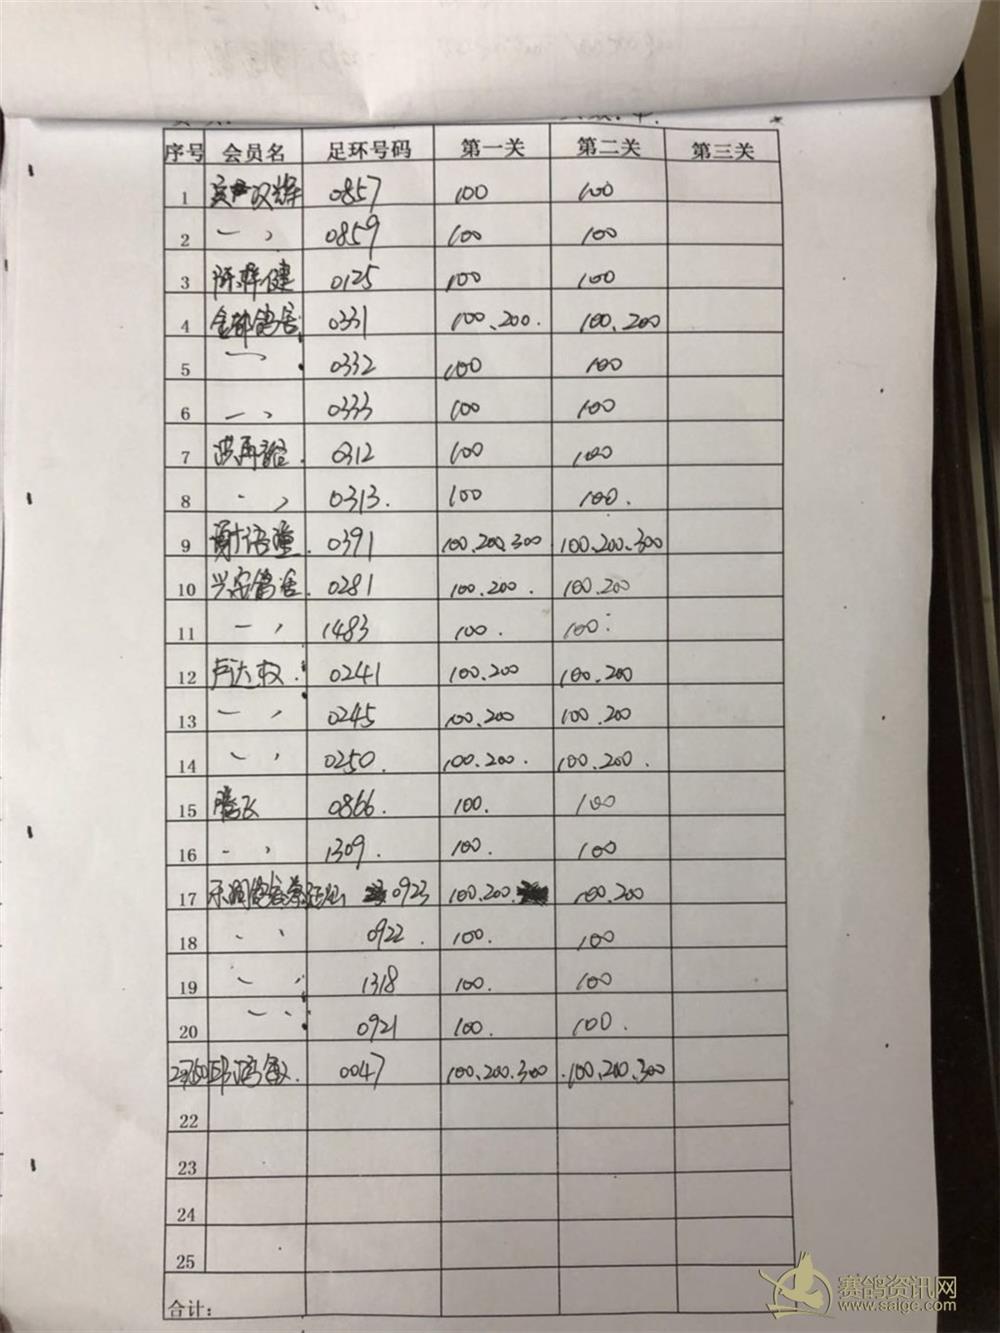 序号 会员名 足环号码 第一关 第二关 第三关
1 双辉 0857 100 100
2 0859 100 100
3 健 0125 100 100
4 鸽舍 0331 100.200. 100.200
5 0332 100 100
6 0333 100 100
7 0312 100 100
8 0313. 100 100.
9 谢 0391 100.200.300 100.200.300
10 兴安鸽舍. 0281 100.200. 100.200
11 1483 100. 100.
12 卢达权. 0241 100.200 100.200
13 0245 100.200 100.200
14 0250. 100.200. 100.200.
15 腾飞 0866. 100. 100
16 1309. 100. 100
17 0923 100.200. 100.200
18 0922. 100. 100
19 1318 100. 100
20 0921 100. 100.
0047 100.200.300 100.200.300
22
23
24
25
合计:
赛鸽资讯网
www.saigc.com